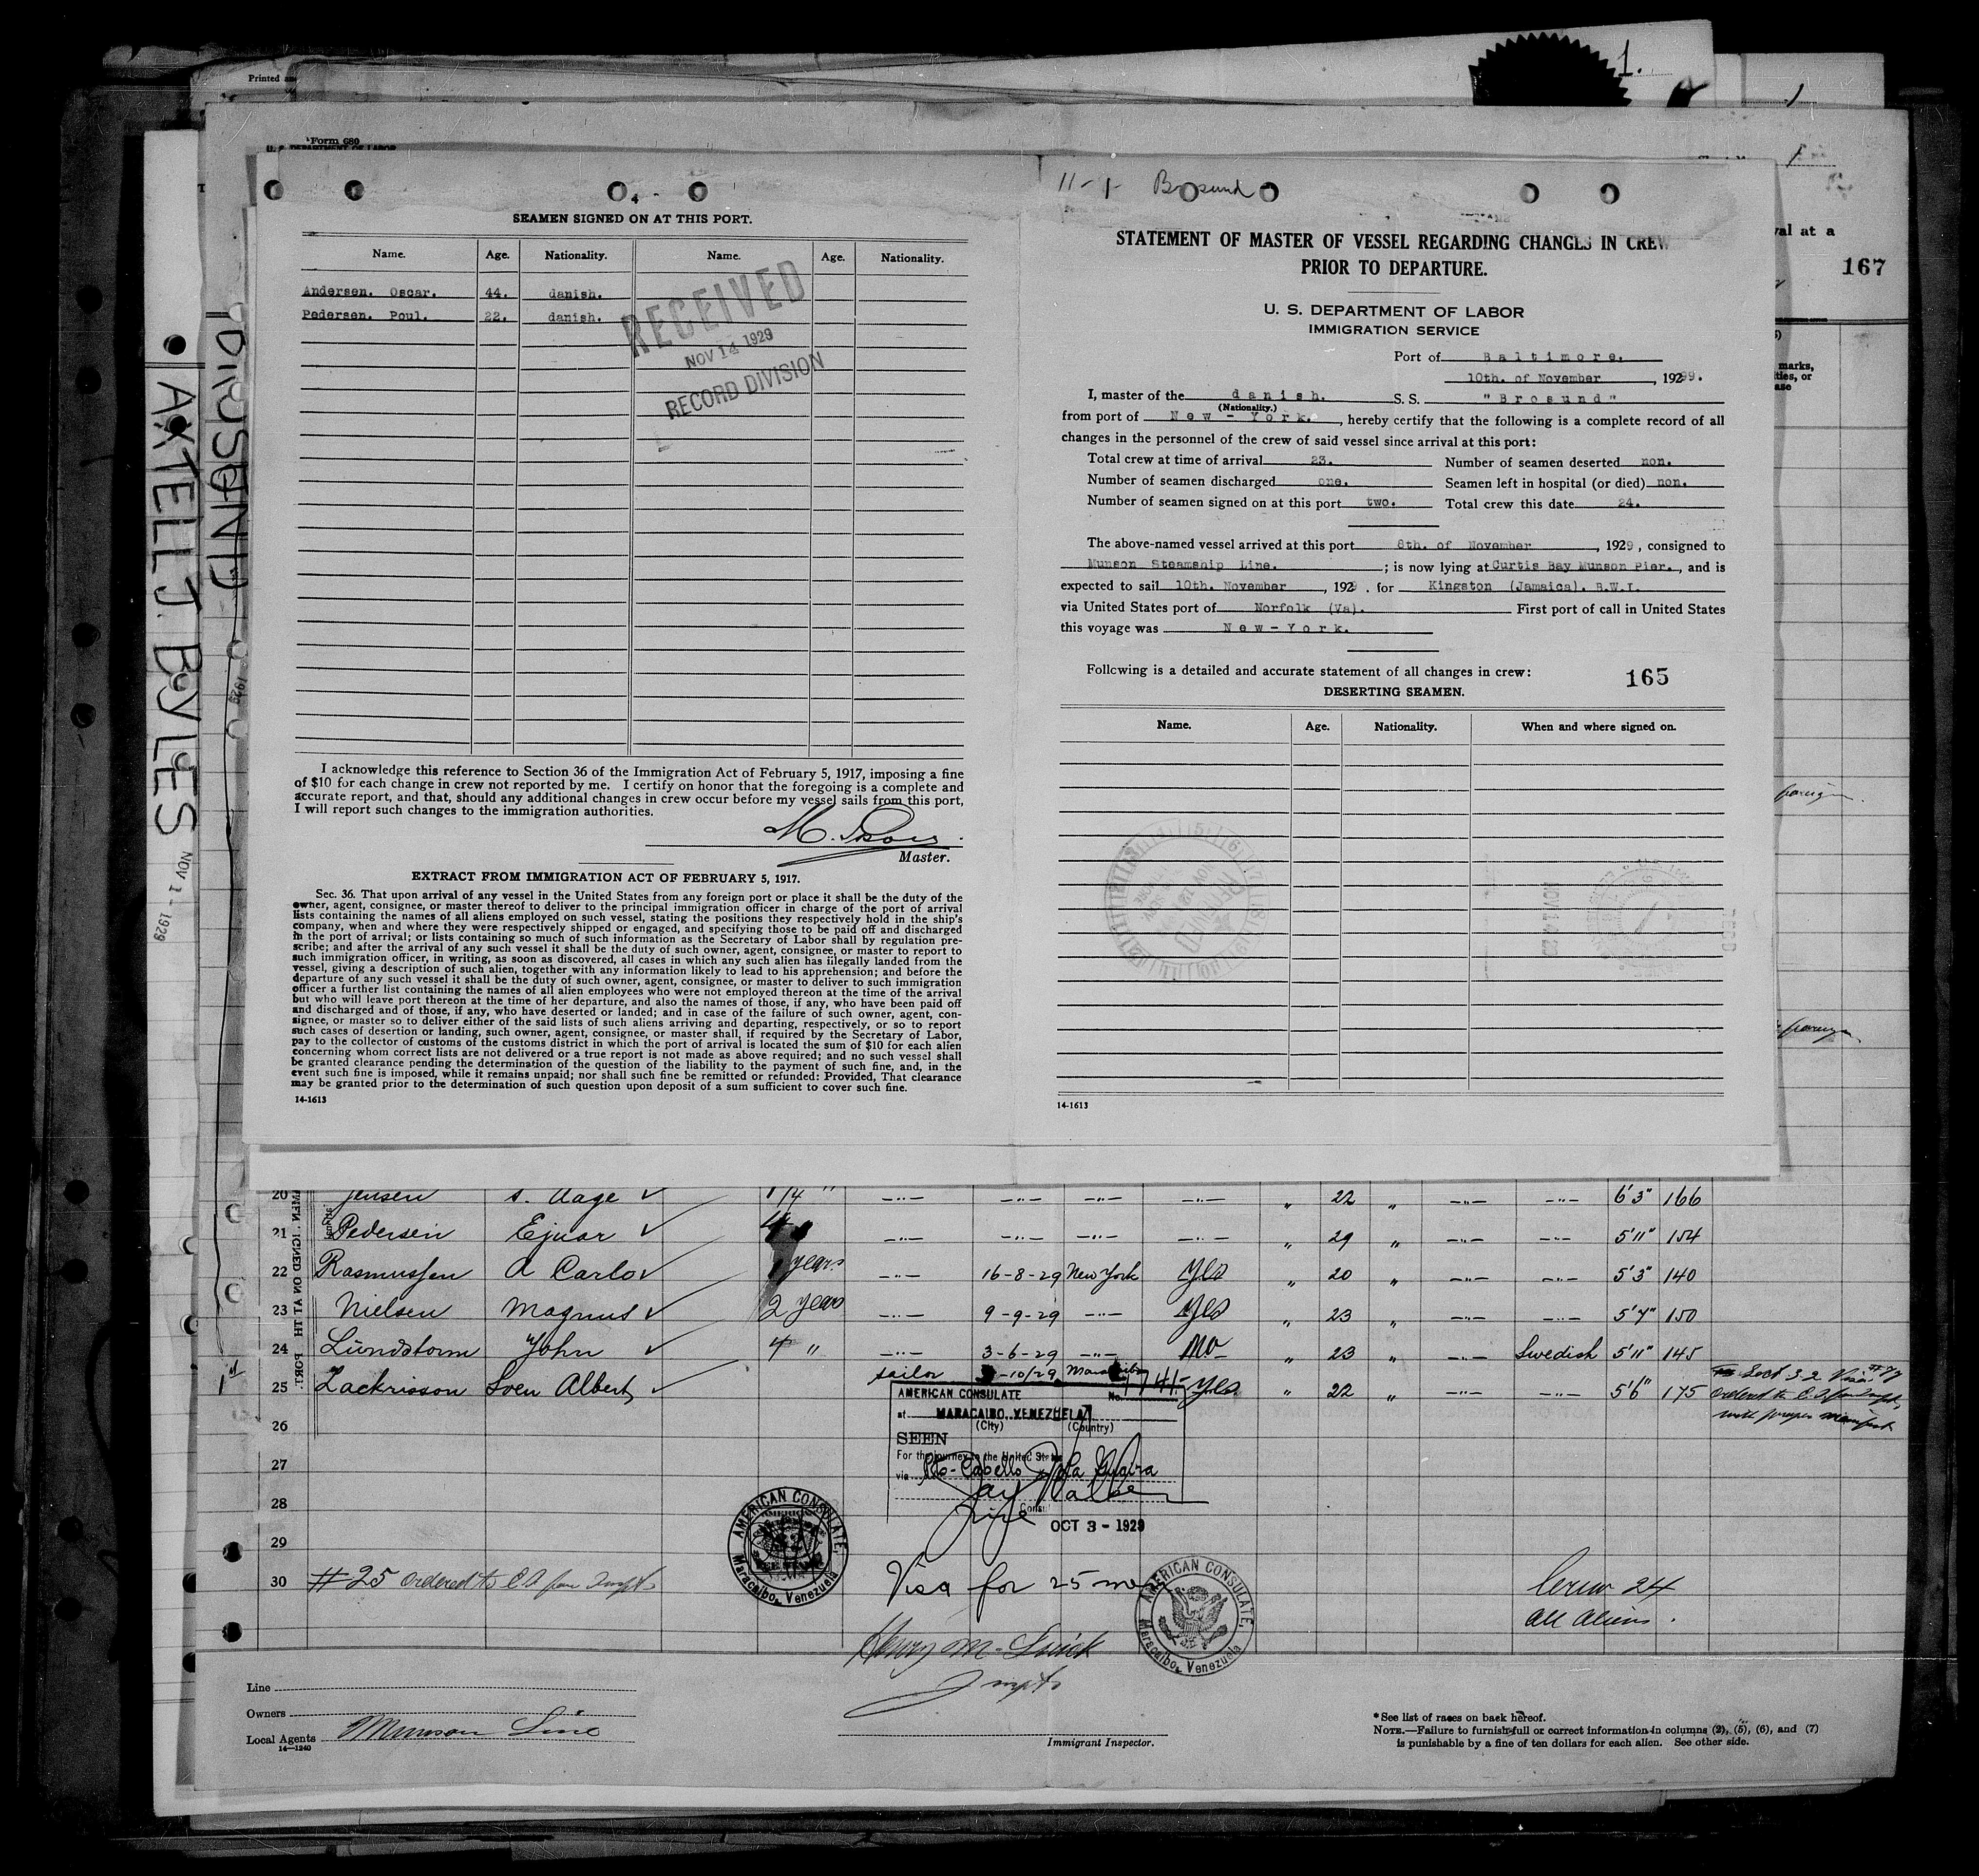 Printed
1.
1
Form 680
U. S. DEPARTMENT OF LABOR
val at a
167
marks,
ties, or
ase
AXTELL J. BYLES
NOV 1 - 1929
1929
SEAMEN SIGNED ON AT THIS PORT.
Name. Age. Nationality. Name. Age. Nationality.
Andersen. Oscar. 44. danish.
Pedersen. Poul. 22. danish.
RECEIVED
NOV 14 1929
RECORD DIVISION
I acknowledge this reference to Section 36 of the Immigration Act of February 5, 1917, imposing a fine
of $10 for each change in crew not reported by me. I certify on honor that the foregoing is a complete and
accurate report, and that, should any additional changes in crew occur before my vessel sails from this port,
I will report such changes to the immigration authorities.
Master.
EXTRACT FROM IMMIGRATION ACT OF FEBRUARY 5, 1917.
Sec. 36. That upon arrival of any vessel in the United States from any foreign port or place it shall be the duty of the
owner, agent, consignee, or master thereof to deliver to the principal immigration officer in charge of the port of arrival
lists containing the names of all aliens employed on such vessel, stating the positions they respectively hold in the ship's
company, when and where they were respectively shipped or engaged, and specifying those to be paid off and discharged
in the port of arrival; or lists containing so much of such information as the Secretary of Labor shall by regulation pre-
scribe; and after the arrival of any such vessel it shall be the duty of such owner, agent, consignee, or master to report to
such immigration officer, in writing, as soon as discovered, all cases in which any such alien has illegally landed from the
vessel, giving a description of such alien, together with any information likely to lead to his apprehension; and before the
departure of any such vessel it shall be the duty of such owner, agent, consignee, or master to deliver to such immigration
officer a further list containing the names of all alien employees who were not employed thereon at the time of the arrival
but who will leave port thereon at the time of her departure, and also the names of those, if any, who have been paid off
and discharged and of those, if any, who have deserted or landed; and in case of the failure of such owner, agent, con-
signee, or master so to deliver either of the said lists of such aliens arriving and departing, respectively, or so to report
such cases of desertion or landing, such owner, agent, consignee, or master shall, if required by the Secretary of Labor,
pay to the collector of customs of the customs district in which the port of arrival is located the sum of $10 for each alien
concerning whom correct lists are not delivered or a true report is not made as above required; and no such vessel shall
be granted clearance pending the determination of the question of the liability to the payment of such fine, and, in the
event such fine is imposed, while it remains unpaid; nor shall such fine be remitted or refunded: Provided, That clearance
may be granted prior to the determination of such question upon deposit of a sum sufficient to cover such fine.
14-1613
11-1- Brosund
STATEMENT OF MASTER OF VESSEL REGARDING CHANGES IN CREW
PRIOR TO DEPARTURE.
U. S. DEPARTMENT OF LABOR
IMMIGRATION SERVICE
Port of Baltimore.
10th. of November, 19299.
I, master of the danish. S. S. "Brosund"
(Nationality.)
from port of New-York., hereby certify that the following is a complete record of all
changes in the personnel of the crew of said vessel since arrival at this port:
Total crew at time of arrival 23. Number of seamen deserted non.
Number of seamen discharged one. Seamen left in hospital (or died) non.
Number of seamen signed on at this port two. Total crew this date 24.
The above-named vessel arrived at this port 8th. of November, 1929, consigned to
Munson Steamship Line.; is now lying at Curtis Bay Munson Pier., and is
expected to sail 10th. November, 1929. for Kingston (Jamaica). B.W.I.
via United States port of Norfolk (Va). First port of call in United States
this voyage was New-York.
Following is a detailed and accurate statement of all changes in crew: 165
DESERTING SEAMEN.
Name. Age. Nationality. When and where signed on.
14-1613
20 Jensen S. Aage ✓ 1/4 " —"— —"— —"— —"— " 22 " —"— —"— 6'3" 166
21 Pedersen Ejnar ✓ —"— —"— —"— —"— " 29 " —"— —"— 5'11" 154
22 Rasmussen A Carlo ✓ years —"— 16-8-29 New York Yes " 20 " —"— —"— 5'3" 140
23 Nielsen Magnus ✓ 2 years —"— 9-9-29 —"— Yes " 23 " —"— —"— 5'7" 150
24 Lundstorm John ✓ 4 " —"— 3-6-29 —"— No " 23 " —"— Swedish 5'11" 145
25 Zackrisson Sven Albert ✓ sailor -10/29 Yes " 22 " —"— —"— 5'6" 175
26
27
28
29
30 #25 ordered to
AMERICAN CONSULATE No.
at MARACAIBO, VENEZUELA
(City) (Country)
SEEN
For the journey to the United States
via Pto-Cabello La Guaira
Consul
OCT 3 - 1929
AMERICAN CONSULATE,
Maracaibo, Venezuela
Visa for 25 men
AMERICAN CONSULATE,
Maracaibo, Venezuela
Crew 24
all aliens.
Line
Owners
Local Agents Munson Line
14-1240
Immigrant Inspector.
*See list of races on back hereof.
NOTE.—Failure to furnish full or correct information in columns (2), (5), (6), and (7)
is punishable by a fine of ten dollars for each alien. See other side.